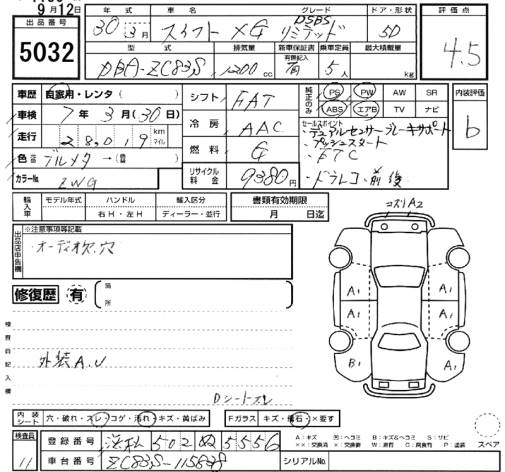 9月12日
出品番号
5032
年式 車名 グレード ドア・形状
30年 3月 スイフト XG DSBS リミテッド 5D
評価点
4.5
型式 排気量 新車保証書 乗車定員 最大積載量
有無記入
DBA-ZC83S 1200 cc 有 5人 kg
車歴 自家用・レンタ( )
車検 7年3月(30日)
走行 28,019 km マイル
色 ブルメタ →( )
カラーNo. ZWG
シフト FAT
冷房 AAC
燃料 G
リサイクル料金 9380円
純正のみ
PS PW AW SR
ABS エアB TV ナビ
内装評価
b
セールスポイント
・デュアルセンサーブレーキサポート
・プッシュスタート
・ETC
・ドラレコ 前後
輸入車 モデル年式 ハンドル 輸入区分
年 右H・左H ディーラー・並行
書類有効期限
月 日迄
出品店申告欄
※注意事項等記載
・オーディオ欠、穴
修復歴 有
箇所
検査員記入欄
外装A.U
Dシートスレ
コスリA2
A1 A1
A1 A1
B1 A1
内装シート 穴・破れ・スレ・コゲ・汚れ・キズ・黄ばみ
Fガラス キズ・飛石・×要す
A:キズ B:キズ&ヘコミ S:サビ
××:交換済 ×:要交換 W:補修 C:腐食 P:塗装
スペア
検査員
11
登録番号 浜松 502 ぬ 5556
車台番号 ZC83S-
シリアルNo.